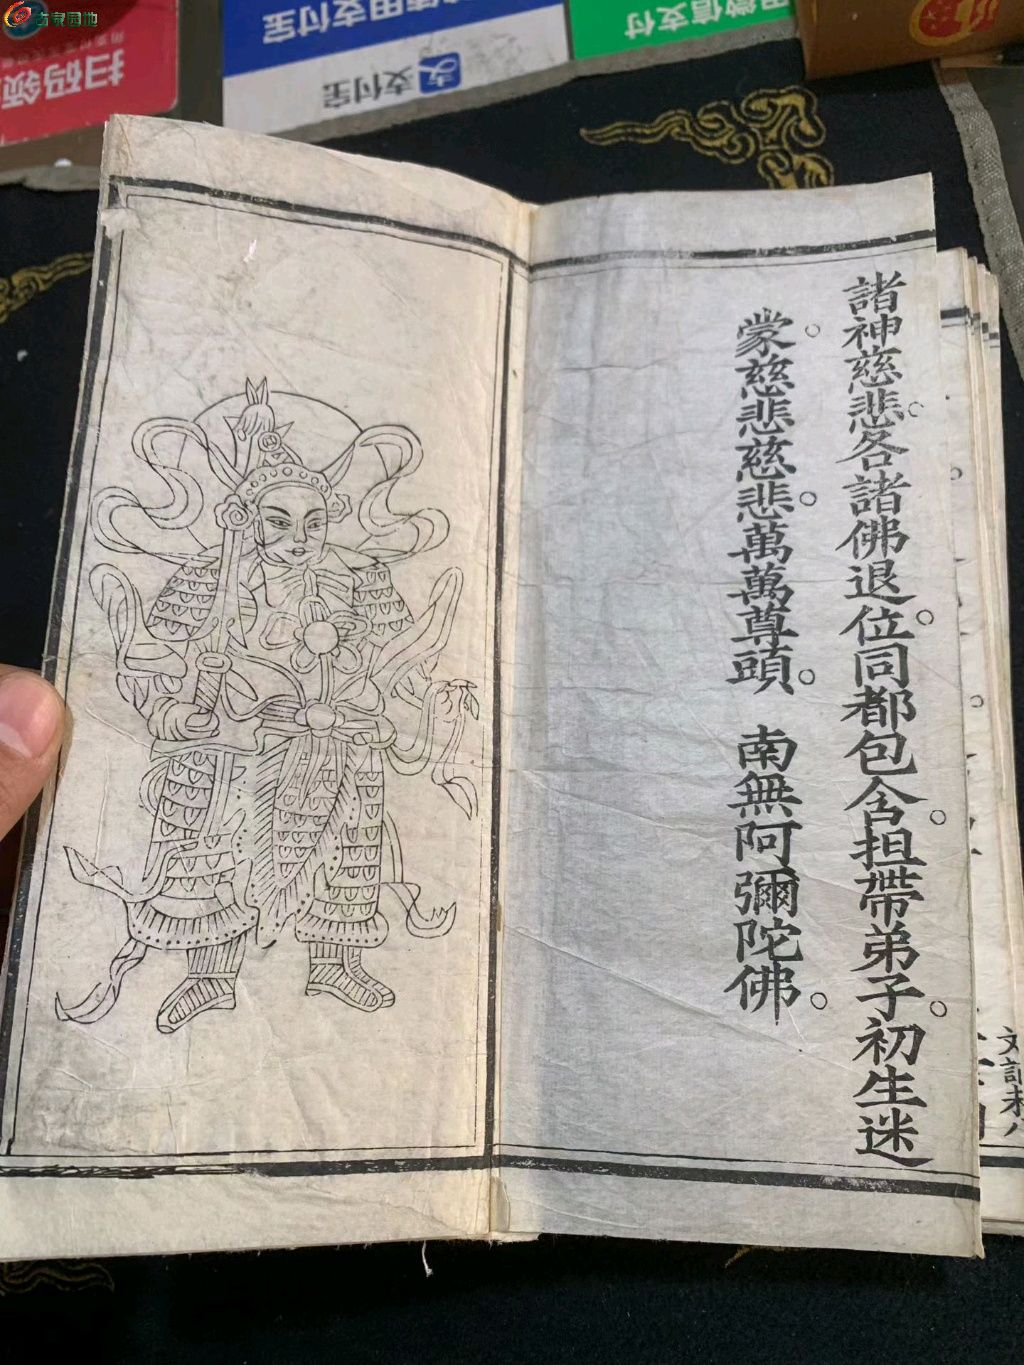 古泉园地
扫码领
使用支付宝
支付宝
用微信支付
諸神慈悲。各諸佛退位。同都包含。担帶弟子。初生迷
蒙。慈悲慈悲。萬萬尊頭。 南無阿彌陀佛。